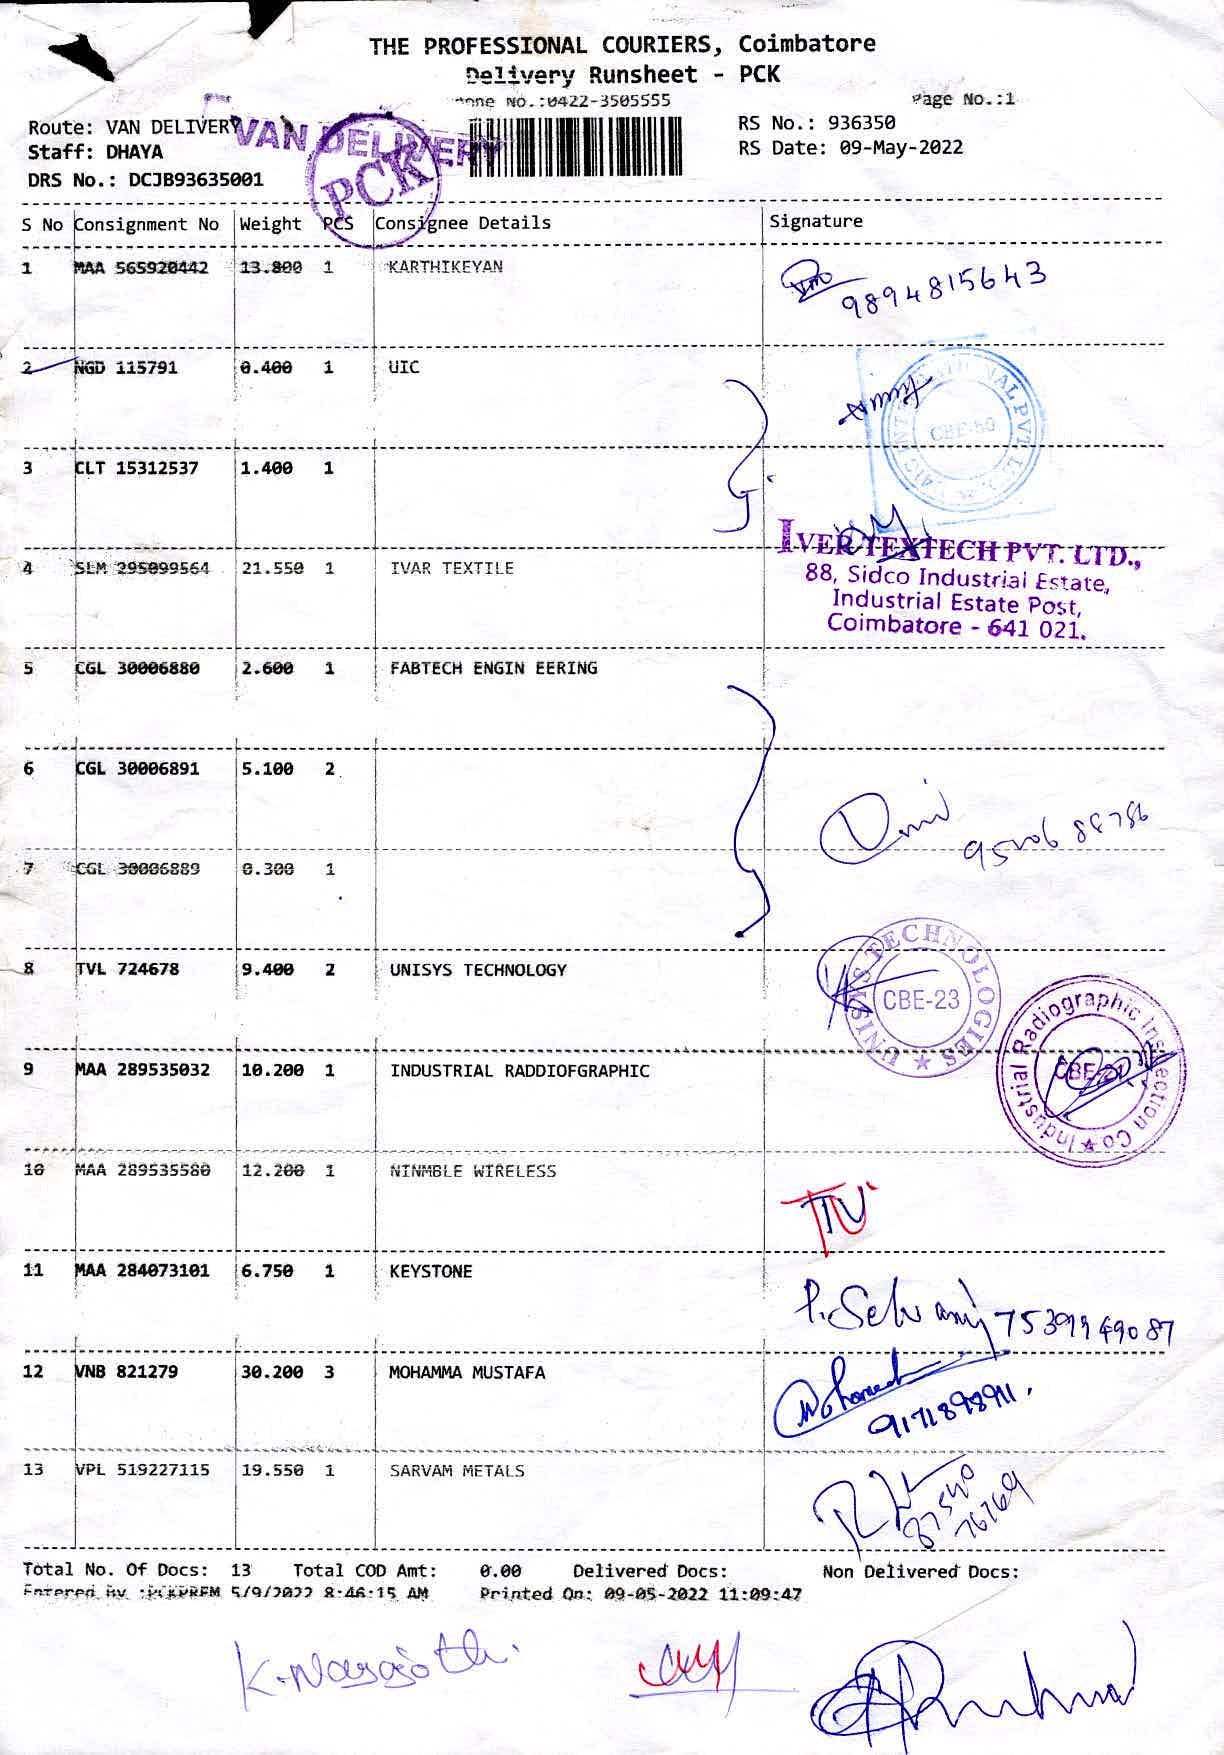 THE PROFESSIONAL COURIERS, Coimbatore
Delivery Runsheet - PCK
No.:0422-3505555
Page No.:1
Route: VAN DELIVERY
VAN DELIVERY
PCK
RS No.: 936350
Staff: DHAYA
RS Date: 09-May-2022
DRS No.: DCJB93635001
S No Consignment No Weight PCS Consignee Details Signature
1 MAA 565920442 13.800 1 KARTHIKEYAN
9894815643
2 NGD 115791 0.400 1 UIC
CBE-50
3 CLT 15312537 1.400 1
IVER TEXTECH PVT. LTD.,
4 SLM 295099564 21.550 1 IVAR TEXTILE
88, Sidco Industrial Estate,
Industrial Estate Post,
Coimbatore - 641 021.
5 CGL 30006880 2.600 1 FABTECH ENGIN EERING
6 CGL 30006891 5.100 2
7 CGL 30006889 0.300 1
8 TVL 724678 9.400 2 UNISYS TECHNOLOGY
UNISYS TECHNOLOGIES
CBE-23
9 MAA 289535032 10.200 1 INDUSTRIAL RADDIOFGRAPHIC
Industrial Radiographic Inspection Co
CBE-21
10 MAA 289535580 12.200 1 NINMBLE WIRELESS
11 MAA 284073101 6.750 1 KEYSTONE
P. Selvamij
12 VNB 821279 30.200 3 MOHAMMA MUSTAFA
Mohamed
9171898911.
13 VPL 519227115 19.550 1 SARVAM METALS
87540
76769
Total No. Of Docs: 13 Total COD Amt: 0.00 Delivered Docs: Non Delivered Docs:
Entered By :PCKPREM 5/9/2022 8:46:15 AM Printed On: 09-05-2022 11:09:47